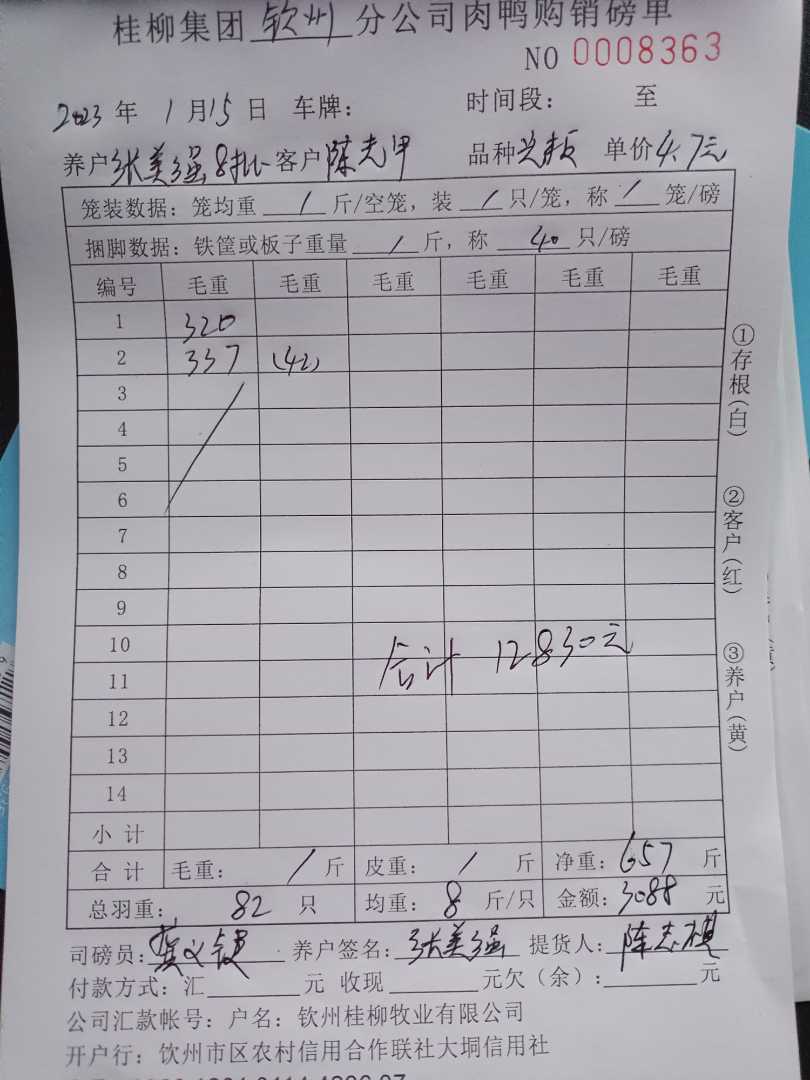 桂柳集团 钦州 分公司肉鸭购销磅单
NO 0008363
2023 年 1 月 15 日 车牌: 时间段: 至
养户 张美强 8批 客户 陈志 品种 单价 4.7元
笼装数据: 笼均重 / 斤/空笼, 装 / 只/笼, 称 / 笼/磅
捆脚数据: 铁筐或板子重量 / 斤, 称 40 只/磅
编号 毛重 毛重 毛重 毛重 毛重 毛重
1 320
2 337 (42)
3
4
5
6
7
8
9
10
合计 12830元
11
12
13
14
小计
合计 毛重: / 斤 皮重: / 斤 净重: 657 斤
总羽重: 82 只 均重: 8 斤/只 金额: 3088 元
司磅员: 养户签名: 张美强 提货人: 陈志棋
付款方式: 汇 元 收现 元欠(余): 元
公司汇款帐号: 户名: 钦州桂柳牧业有限公司
开户行: 钦州市区农村信用合作联社大垌信用社
①存根(白)
②客户(红)
③养户(黄)